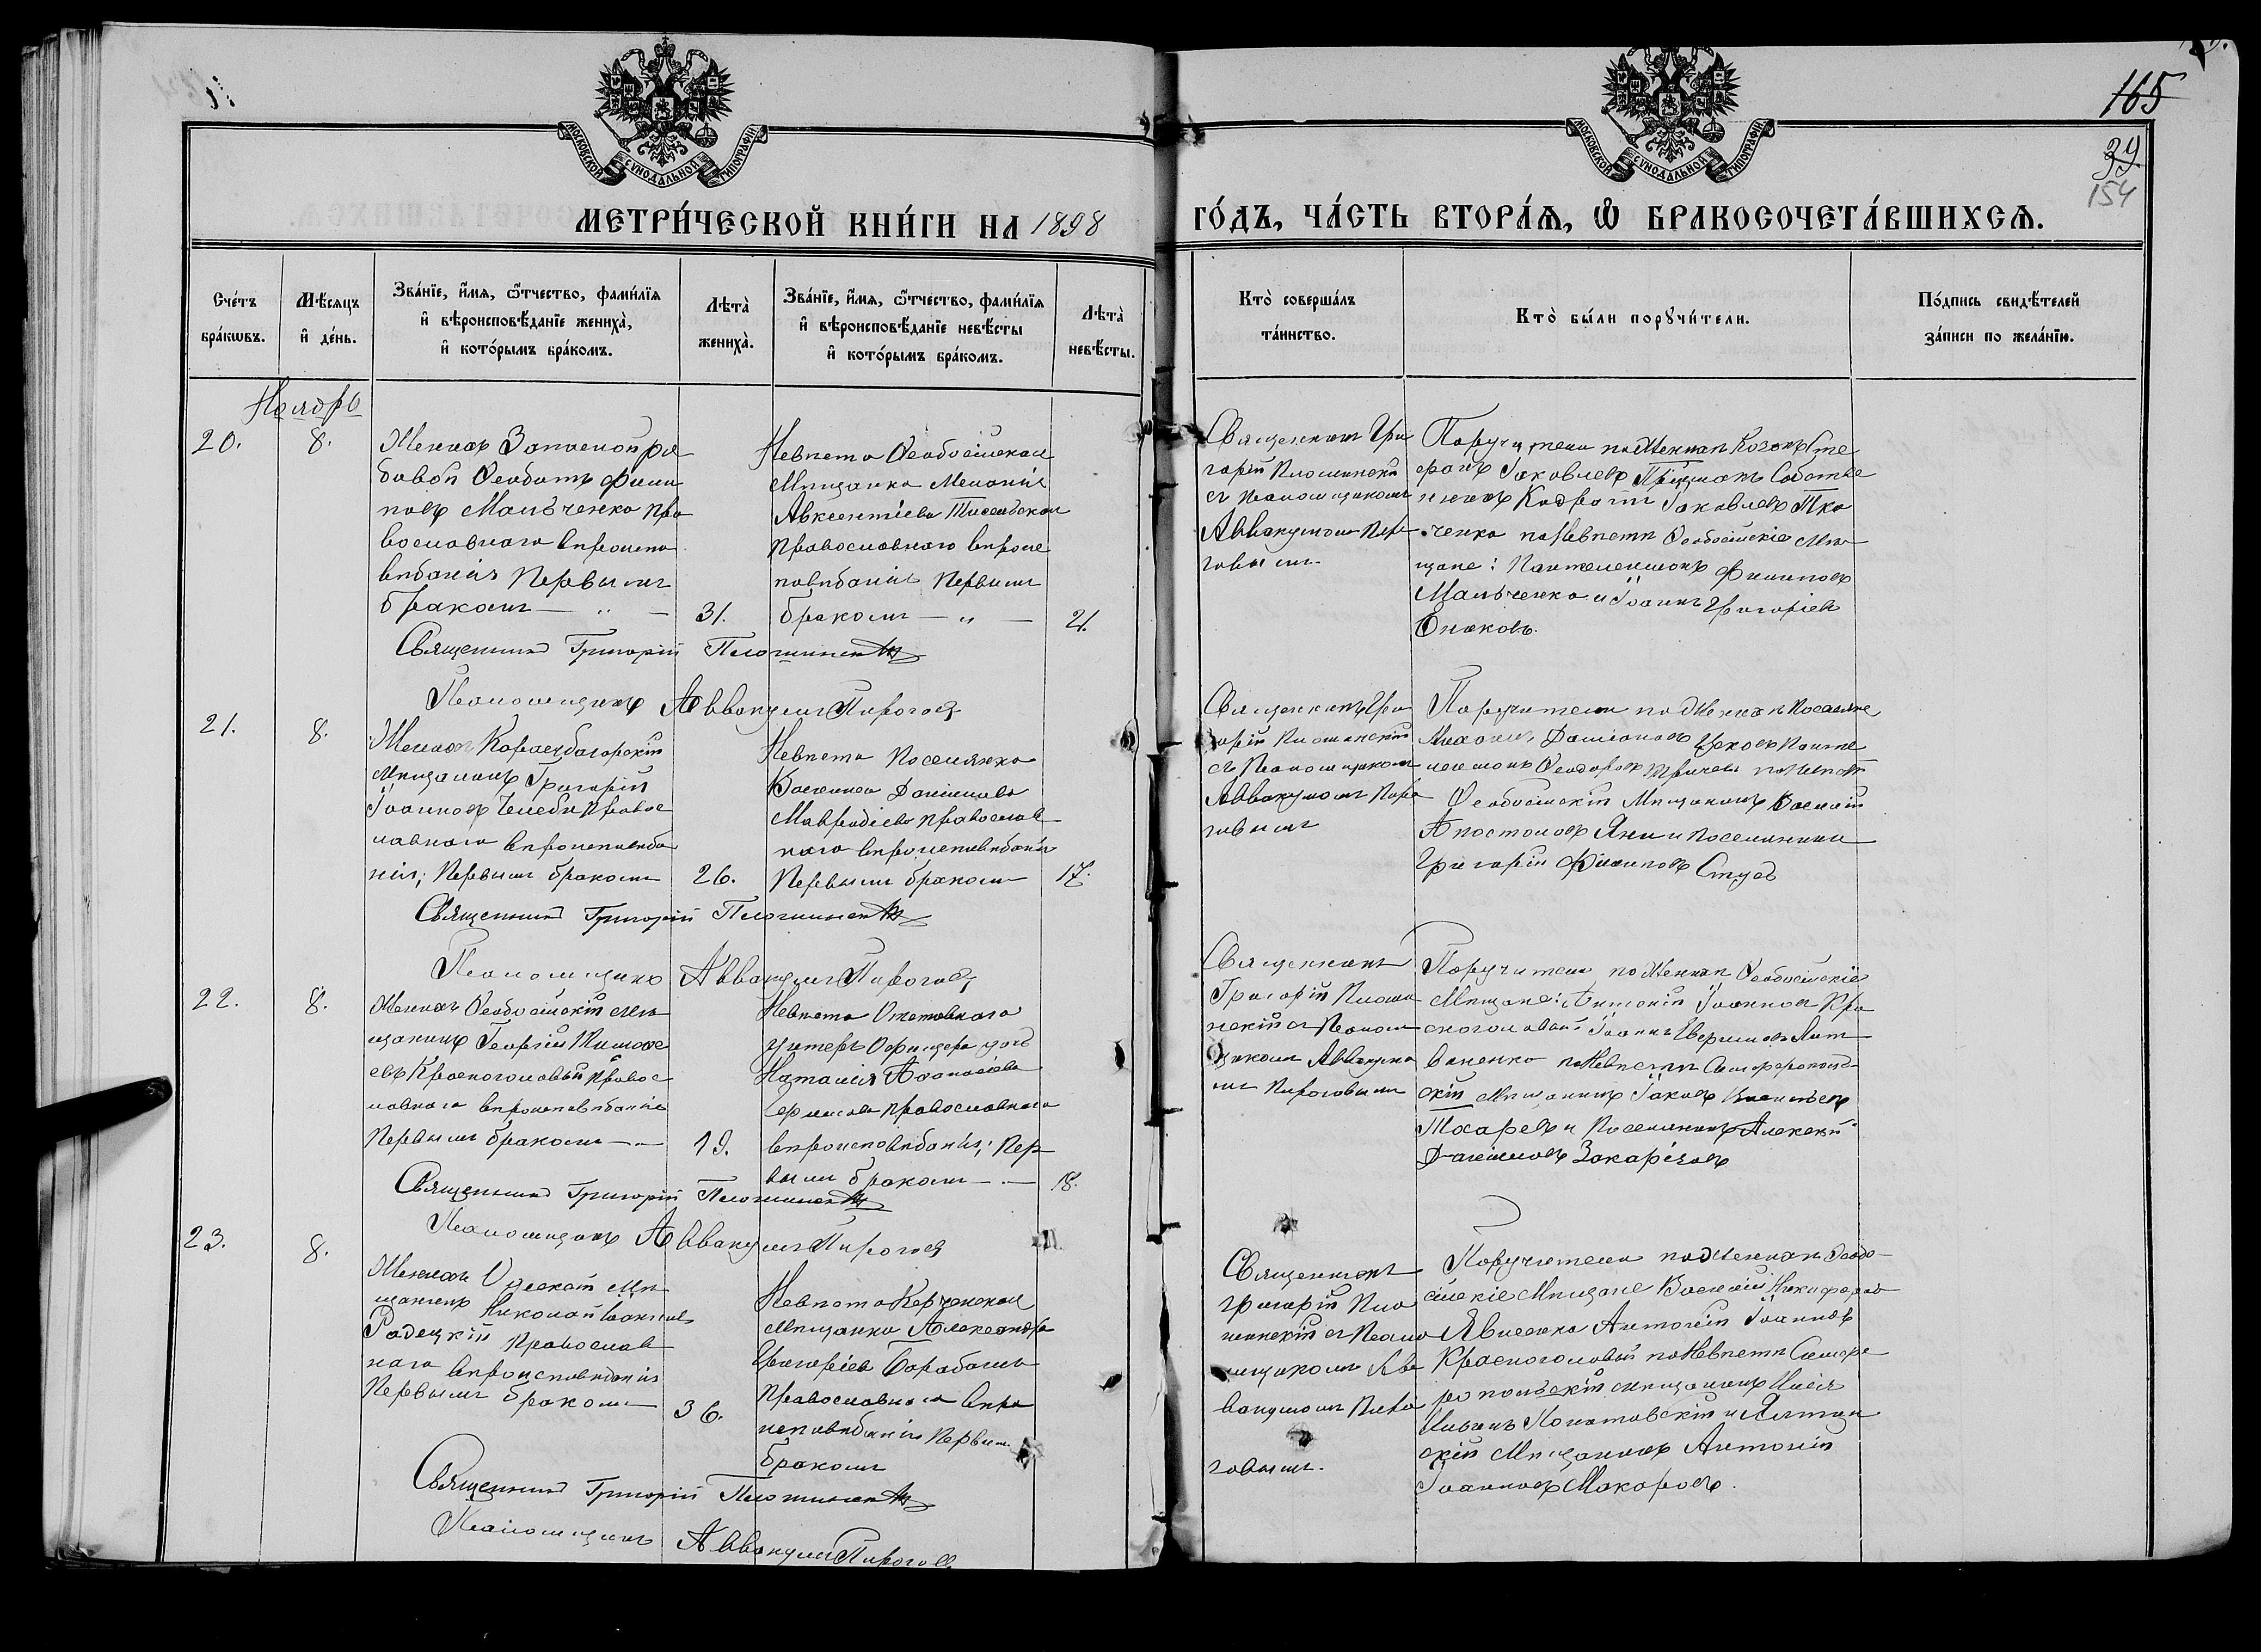 165
39
154
МОСКОВСКОЙ СѴНОДАЛЬНОЙ ТИПОГРАФІИ
МОСКОВСКОЙ СѴНОДАЛЬНОЙ ТИПОГРАФІИ
МЕТРИ́ЧЕСКОЙ КНИ́ГИ НА 1898
ГО́ДЪ, ЧА́СТЬ ВТОРА́Ѧ, Ѽ БРАКОСОЧЕТА́ВШИХСѦ.
Сче́тъ
бра́кѡвъ.
Мѣ́сѧцъ
и҆ де́нь.
Зва́нїе, и҆́мѧ, ѻ҆́тчество, фами́лїѧ
и҆ вѣроисповѣ́данїе жениха̀,
и҆ кото́рымъ бра́комъ.
Лѣта̀
жениха̀.
Зва́нїе, и҆́мѧ, ѻ҆́тчество, фами́лїѧ
и҆ вѣроисповѣ́данїе невѣ́сты
и҆ кото́рымъ бра́комъ.
Лѣта̀
невѣ́сты.
Кто̀ соверша́лъ
та́инство.
Кто̀ бы́ли порꙋчи́тели.
По́дпись свидѣ́телей
за́писи по жела́нїю.
Ноябрь
20.
8.
Женихъ Запасной ря
довой Феодотъ Фили
повъ Мальченко пра
вославнаго вѣроиспо
вѣданія первымъ
бракомъ — „ —
31.
Невѣста Феодосійская
Мѣщанка Меланія
Авксентіева
православнаго вѣроис
повѣданія первымъ
бракомъ — „ —
21.
Священникъ Гри
горій
съ псаломщикомъ
Аввакумомъ Пиро
говымъ.
Поручители по Женихѣ Козакъ Сте
фанъ Іаковлевъ Собстве
нникъ Іаковлевъ Тка
ченко по Невѣстѣ Феодосійскіе мѣ
щане: Пантелеимонъ Филиповъ
Мальченко и Іоаннъ Григорьевъ
Священникъ Григорій
Псаломщикъ Аввакумъ Пироговъ
21.
8.
Женихъ Карасубазарскій
мѣщанинъ Григорій
Іоанновъ Челеби правос
лавнаго вѣроисповѣда
нія; первымъ бракомъ
26.
Невѣста Поселянка
Василиса Даніилова
Мавродіева православ
наго вѣроисповѣданія
Первымъ бракомъ
17.
Священникъ Гри
горій
съ Псаломщикомъ
Аввакумомъ Пиро
говымъ
Поручители по Женихѣ Поселяне
Даміановъ Панте
леимонъ Феодоровъ по Невѣстѣ
Феодосійскій Мѣщанинъ Василій
Апостоловъ Яни и поселянинъ
Григорій Филиповъ
Священникъ Григорій
Псаломщикъ Аввакумъ Пироговъ
22.
8.
Женихъ Феодосійскій мѣ
щанинъ Георгій Тимофе
евъ Красноголовый правос
лавнаго вѣроисповѣданія
первымъ бракомъ —
19.
Невѣста Отставнаго
Унтеръ Офицера дочь
Наталія Афанасіева
православнаго
вѣроисповѣданія; пер
вымъ бракомъ — . —
18.
Священникъ
Григорій
съ Псалом
щикомъ Аввакумо
мъ Пироговымъ
Поручители по Женихѣ Феодосійскіе
Мѣщане: Антоній Іоанновъ Кра
сноголовый Іоаннъ
по Невѣстѣ Симферополь
скій мѣщанинъ Іаковъ Васильевъ
и Поселянинъ Алексѣй
Даніиловъ Захаріевъ
Священникъ Григорій
Псаломщикъ Аввакумъ Пироговъ
23.
8.
Женихъ Одескій мѣ
щанинъ Николай Іоанновъ
Радецкій православ
наго вѣроисповѣданія
Первымъ бракомъ
36.
Невѣста Керченская
Мѣщанка Александра
Григоріева Барабашъ
православнаго вѣро
исповѣданія первым.
бракомъ
Священникъ
Григорій
съ Псало
мщикомъ Авв
вакумомъ Пиро
говымъ.
Поручители по Женихѣ Феодо
сійскіе Мѣщане Василій Никифоровъ
Антоній Іоанновъ
Красноголовый по Невѣстѣ Симфе
ропольскій мѣщанинъ
и Ялтин
скій Мѣщанинъ Антоній
Іоанновъ Макаровъ.
Священникъ Григорій
Псаломщикъ Аввакумъ Пироговъ